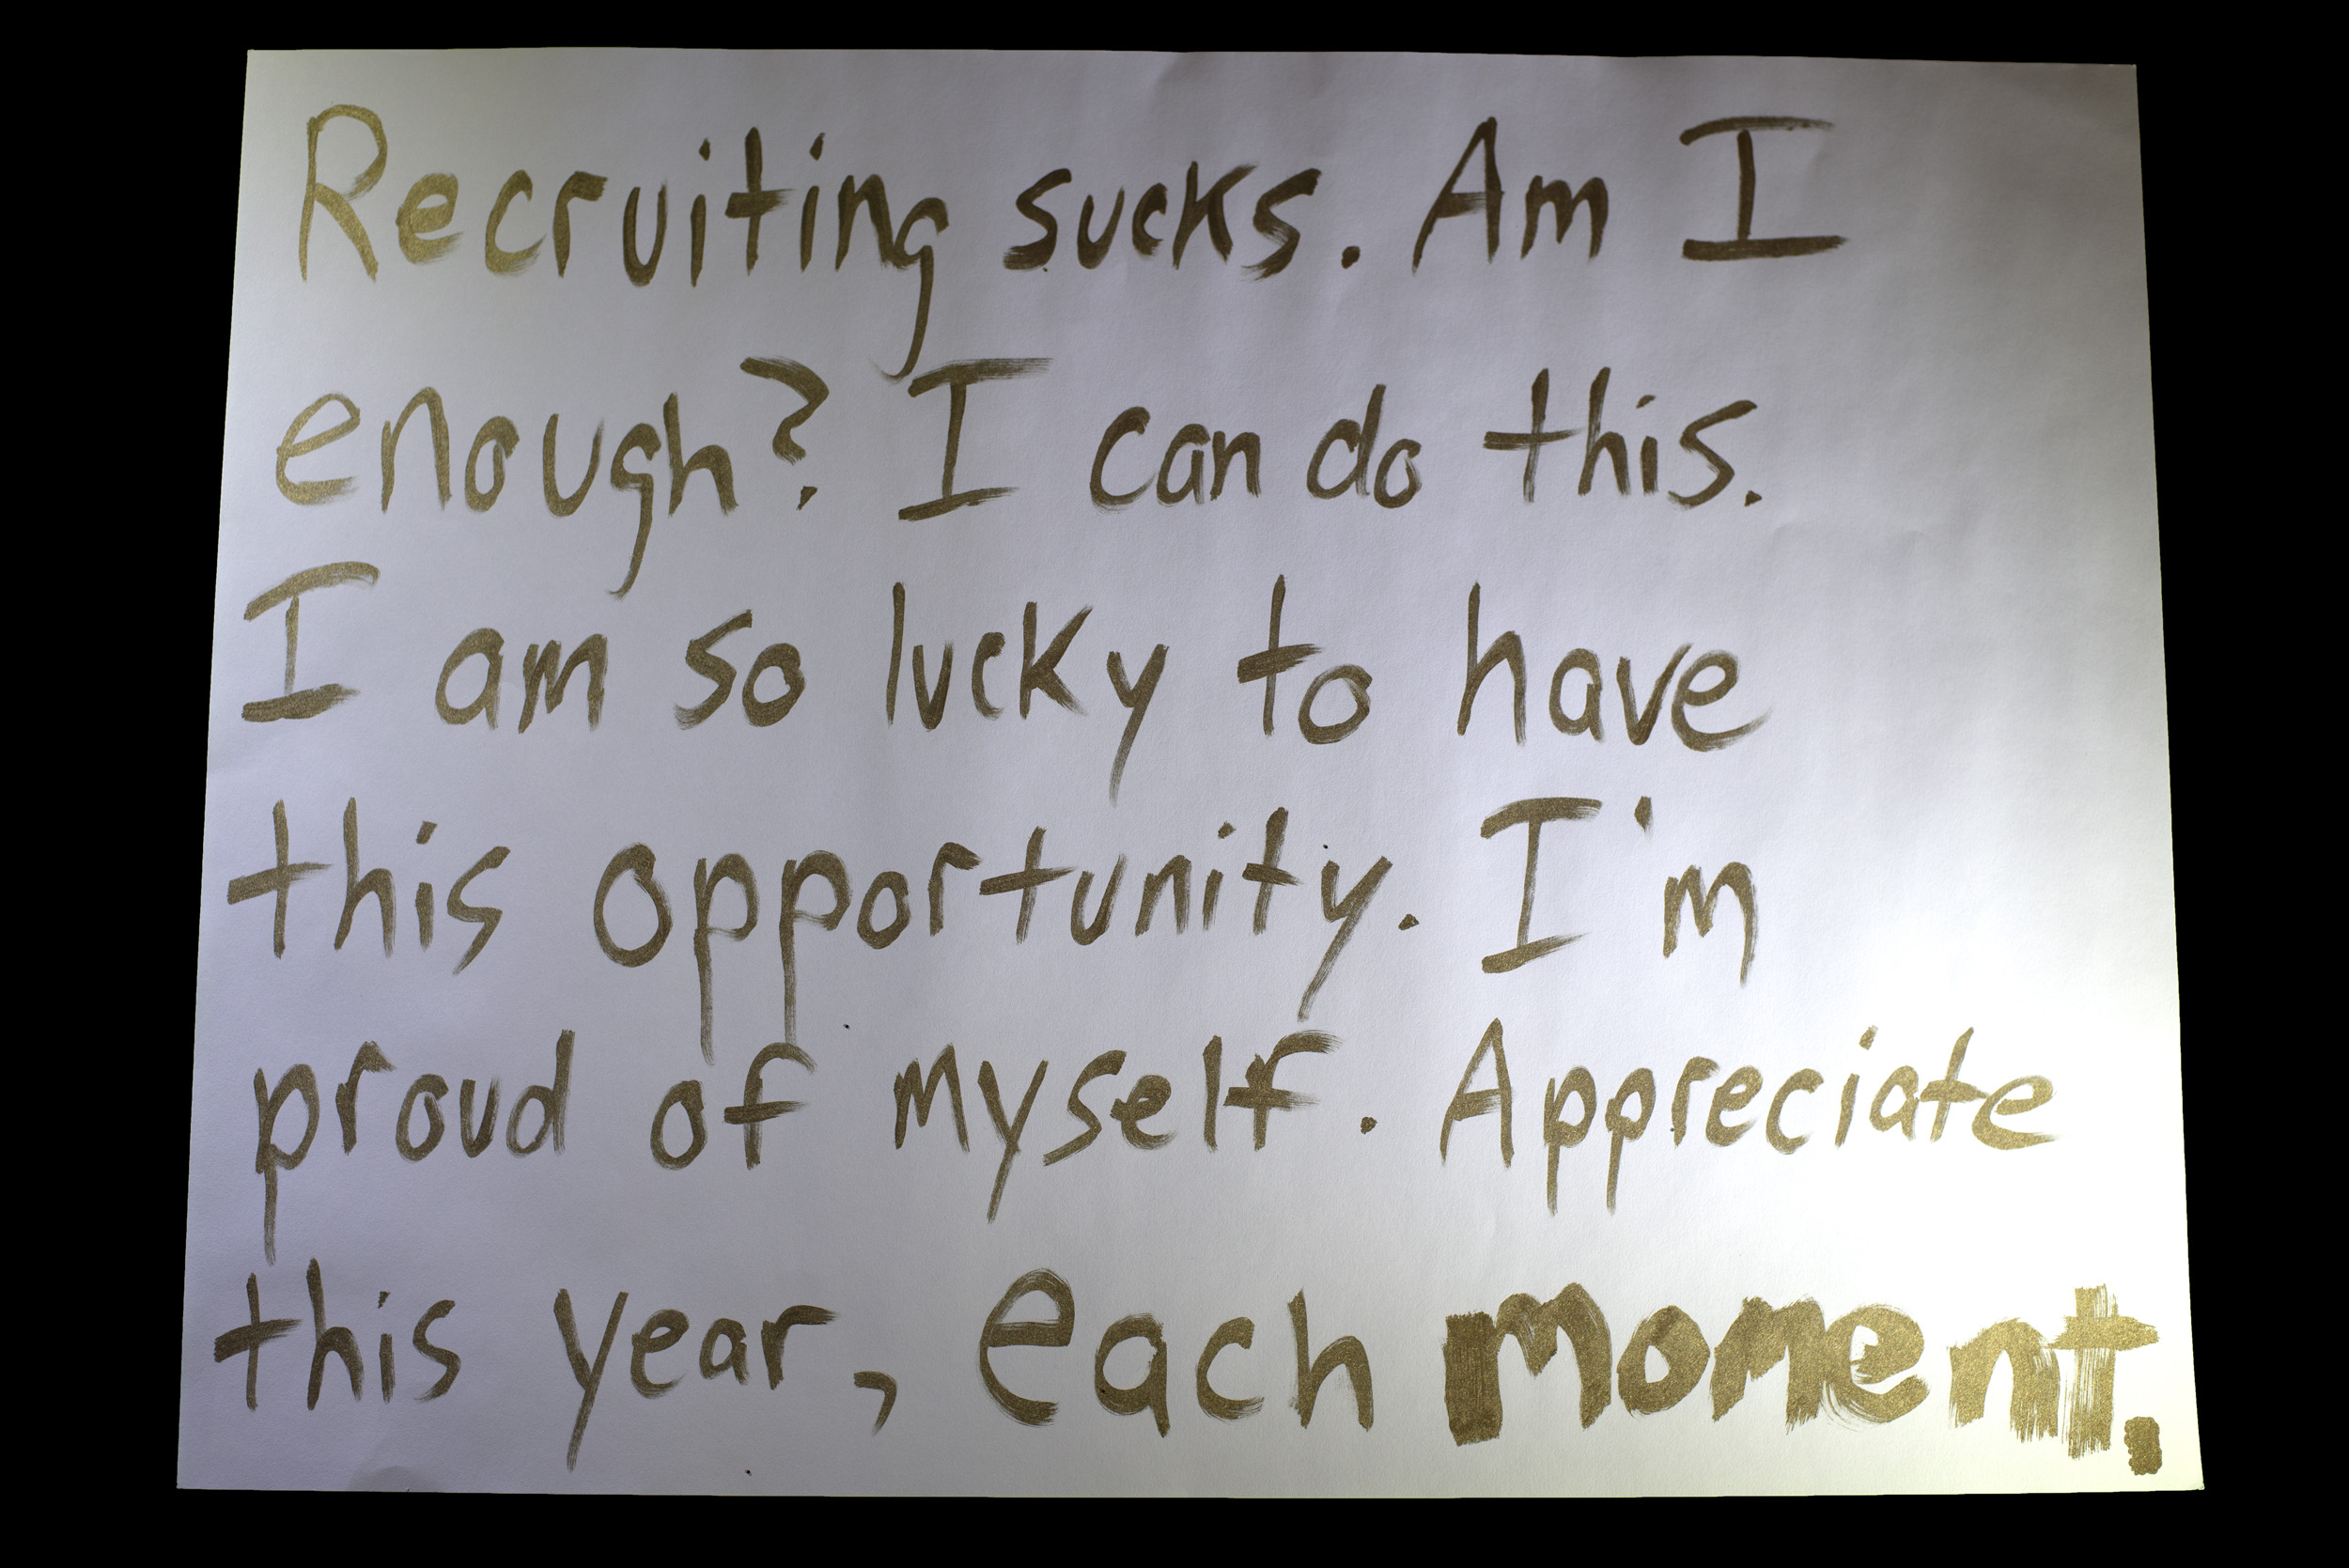 Recruiting sucks. Am I
enough? I can do this.
I am so lucky to have
this opportunity. I'm
proud of myself. Appreciate
this year, each moment.